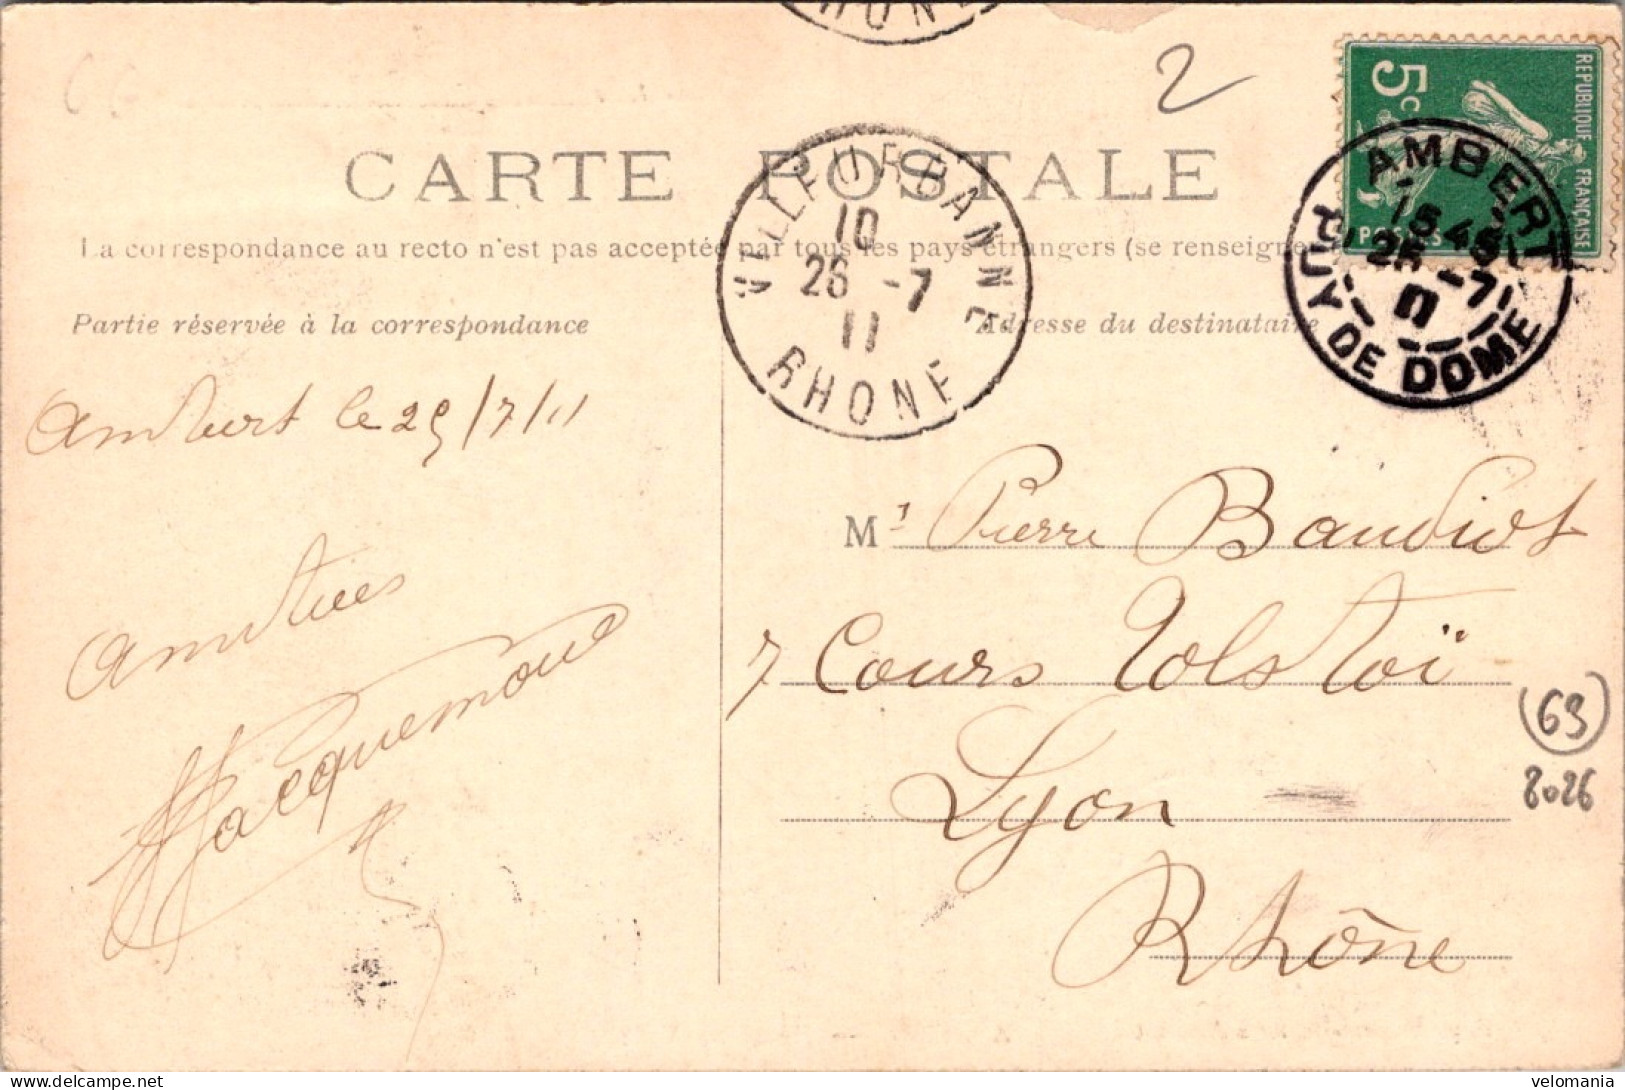 RHONE
2
5c
REPUBLIQUE FRANÇAISE
POSTES
CARTE POSTALE
VILLEURBANNE
10
26 -7
11
RHONE
AMBERT
15 45
25 -7
11
PUY DE DOME
La correspondance au recto n'est pas acceptée par tous les pays étrangers (se renseigne
Partie réservée à la correspondance
Adresse du destinataire
Ambert le 25/7/11
Amitiés
Jacquemond
Mr Pierre Baudiot
7 Cours Tolstoï
Lyon
Rhône
(63)
8026
delcampe.net
velomania